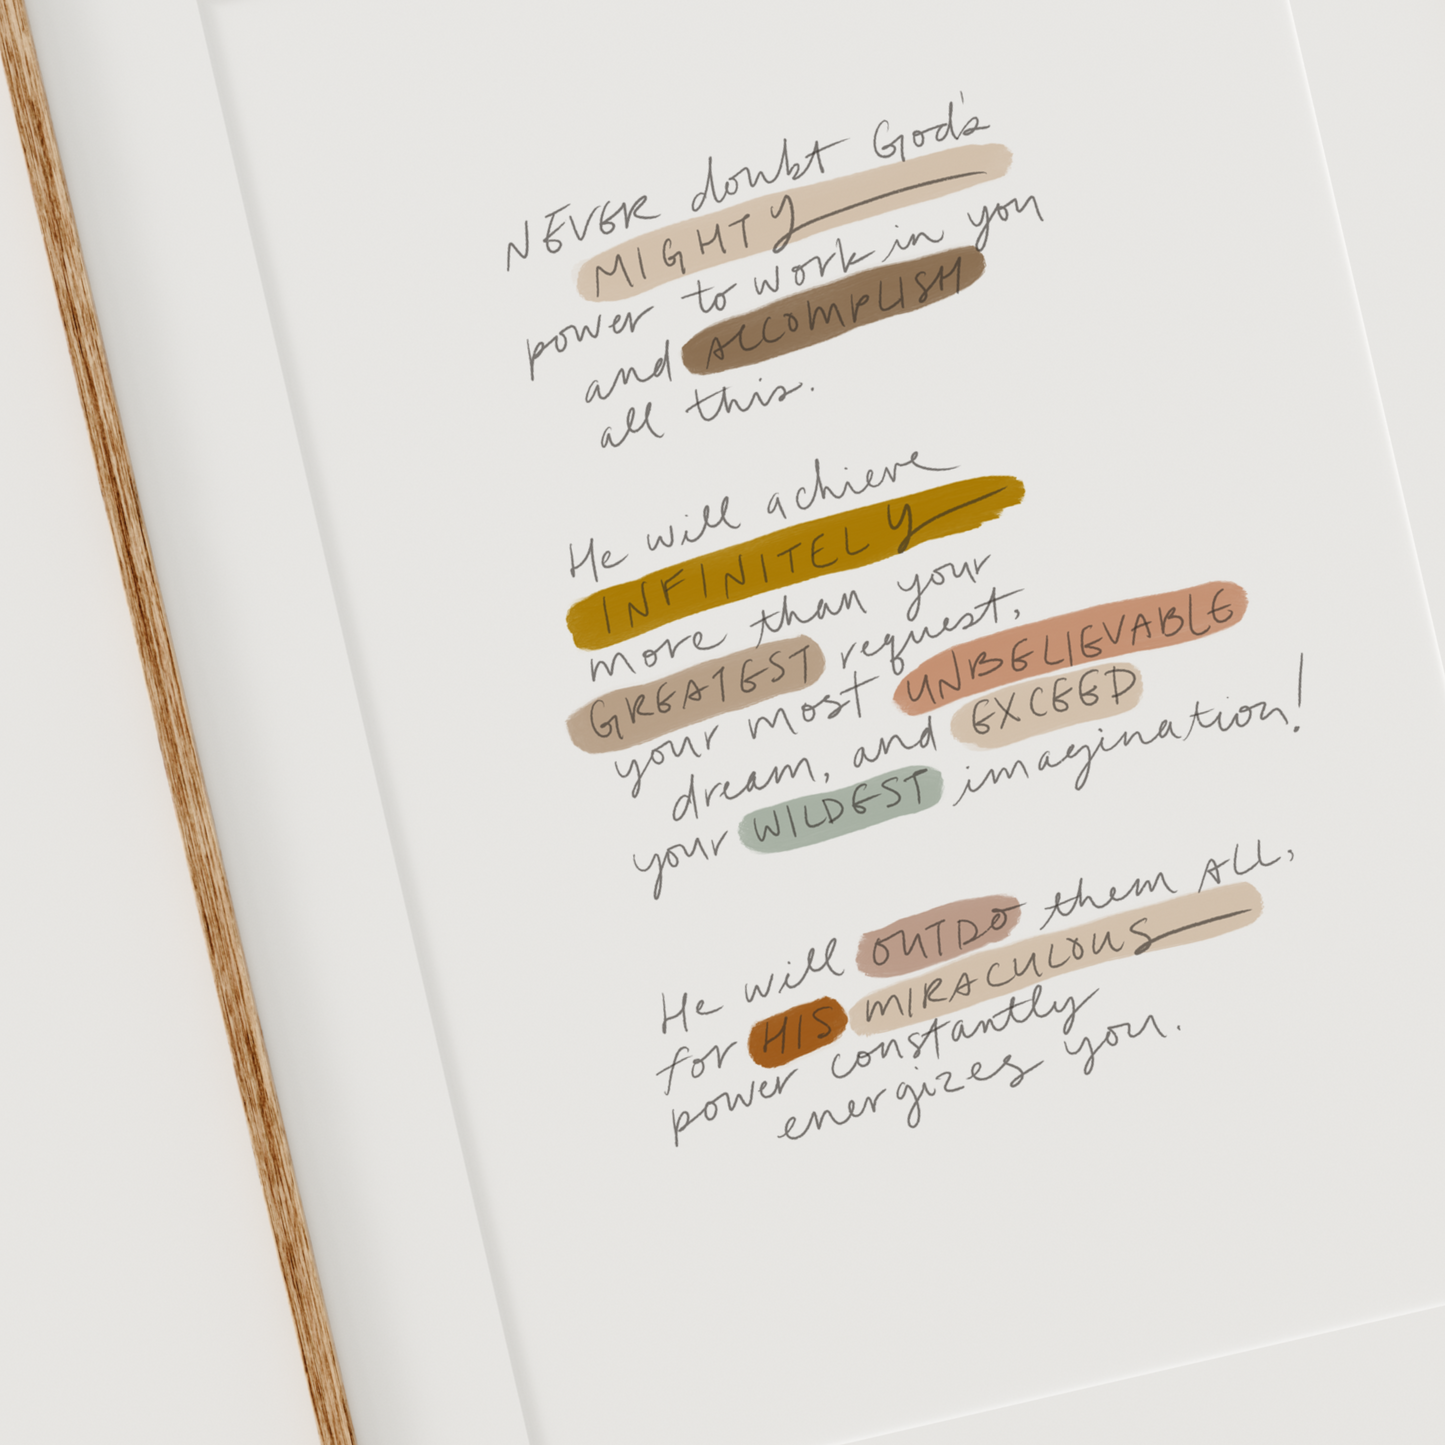 NEVER doubt God's
MIGHTY
power to work in you
and ACCOMPLISH
all this.
He will achieve
INFINITELY
more than your
GREATEST request,
your most UNBELIEVABLE
dream, and EXCEED
your WILDEST imagination!
He will OUTDO them ALL,
for HIS MIRACULOUS
power constantly
energizes you.